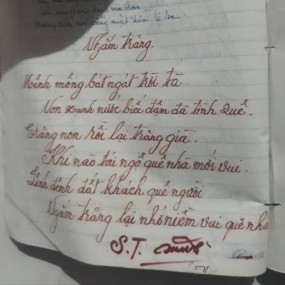 Ngắm trăng.
Mênh mông bát ngát trời ta
Non xanh nước biếc đậm đà tình quê.
Trăng non rồi lại trăng già.
Khi nào tái ngộ quê nhà mới vui.
Lênh đênh đất khách quê người
Ngắm trăng lại nhớ niềm vui quê nhà
S.T.